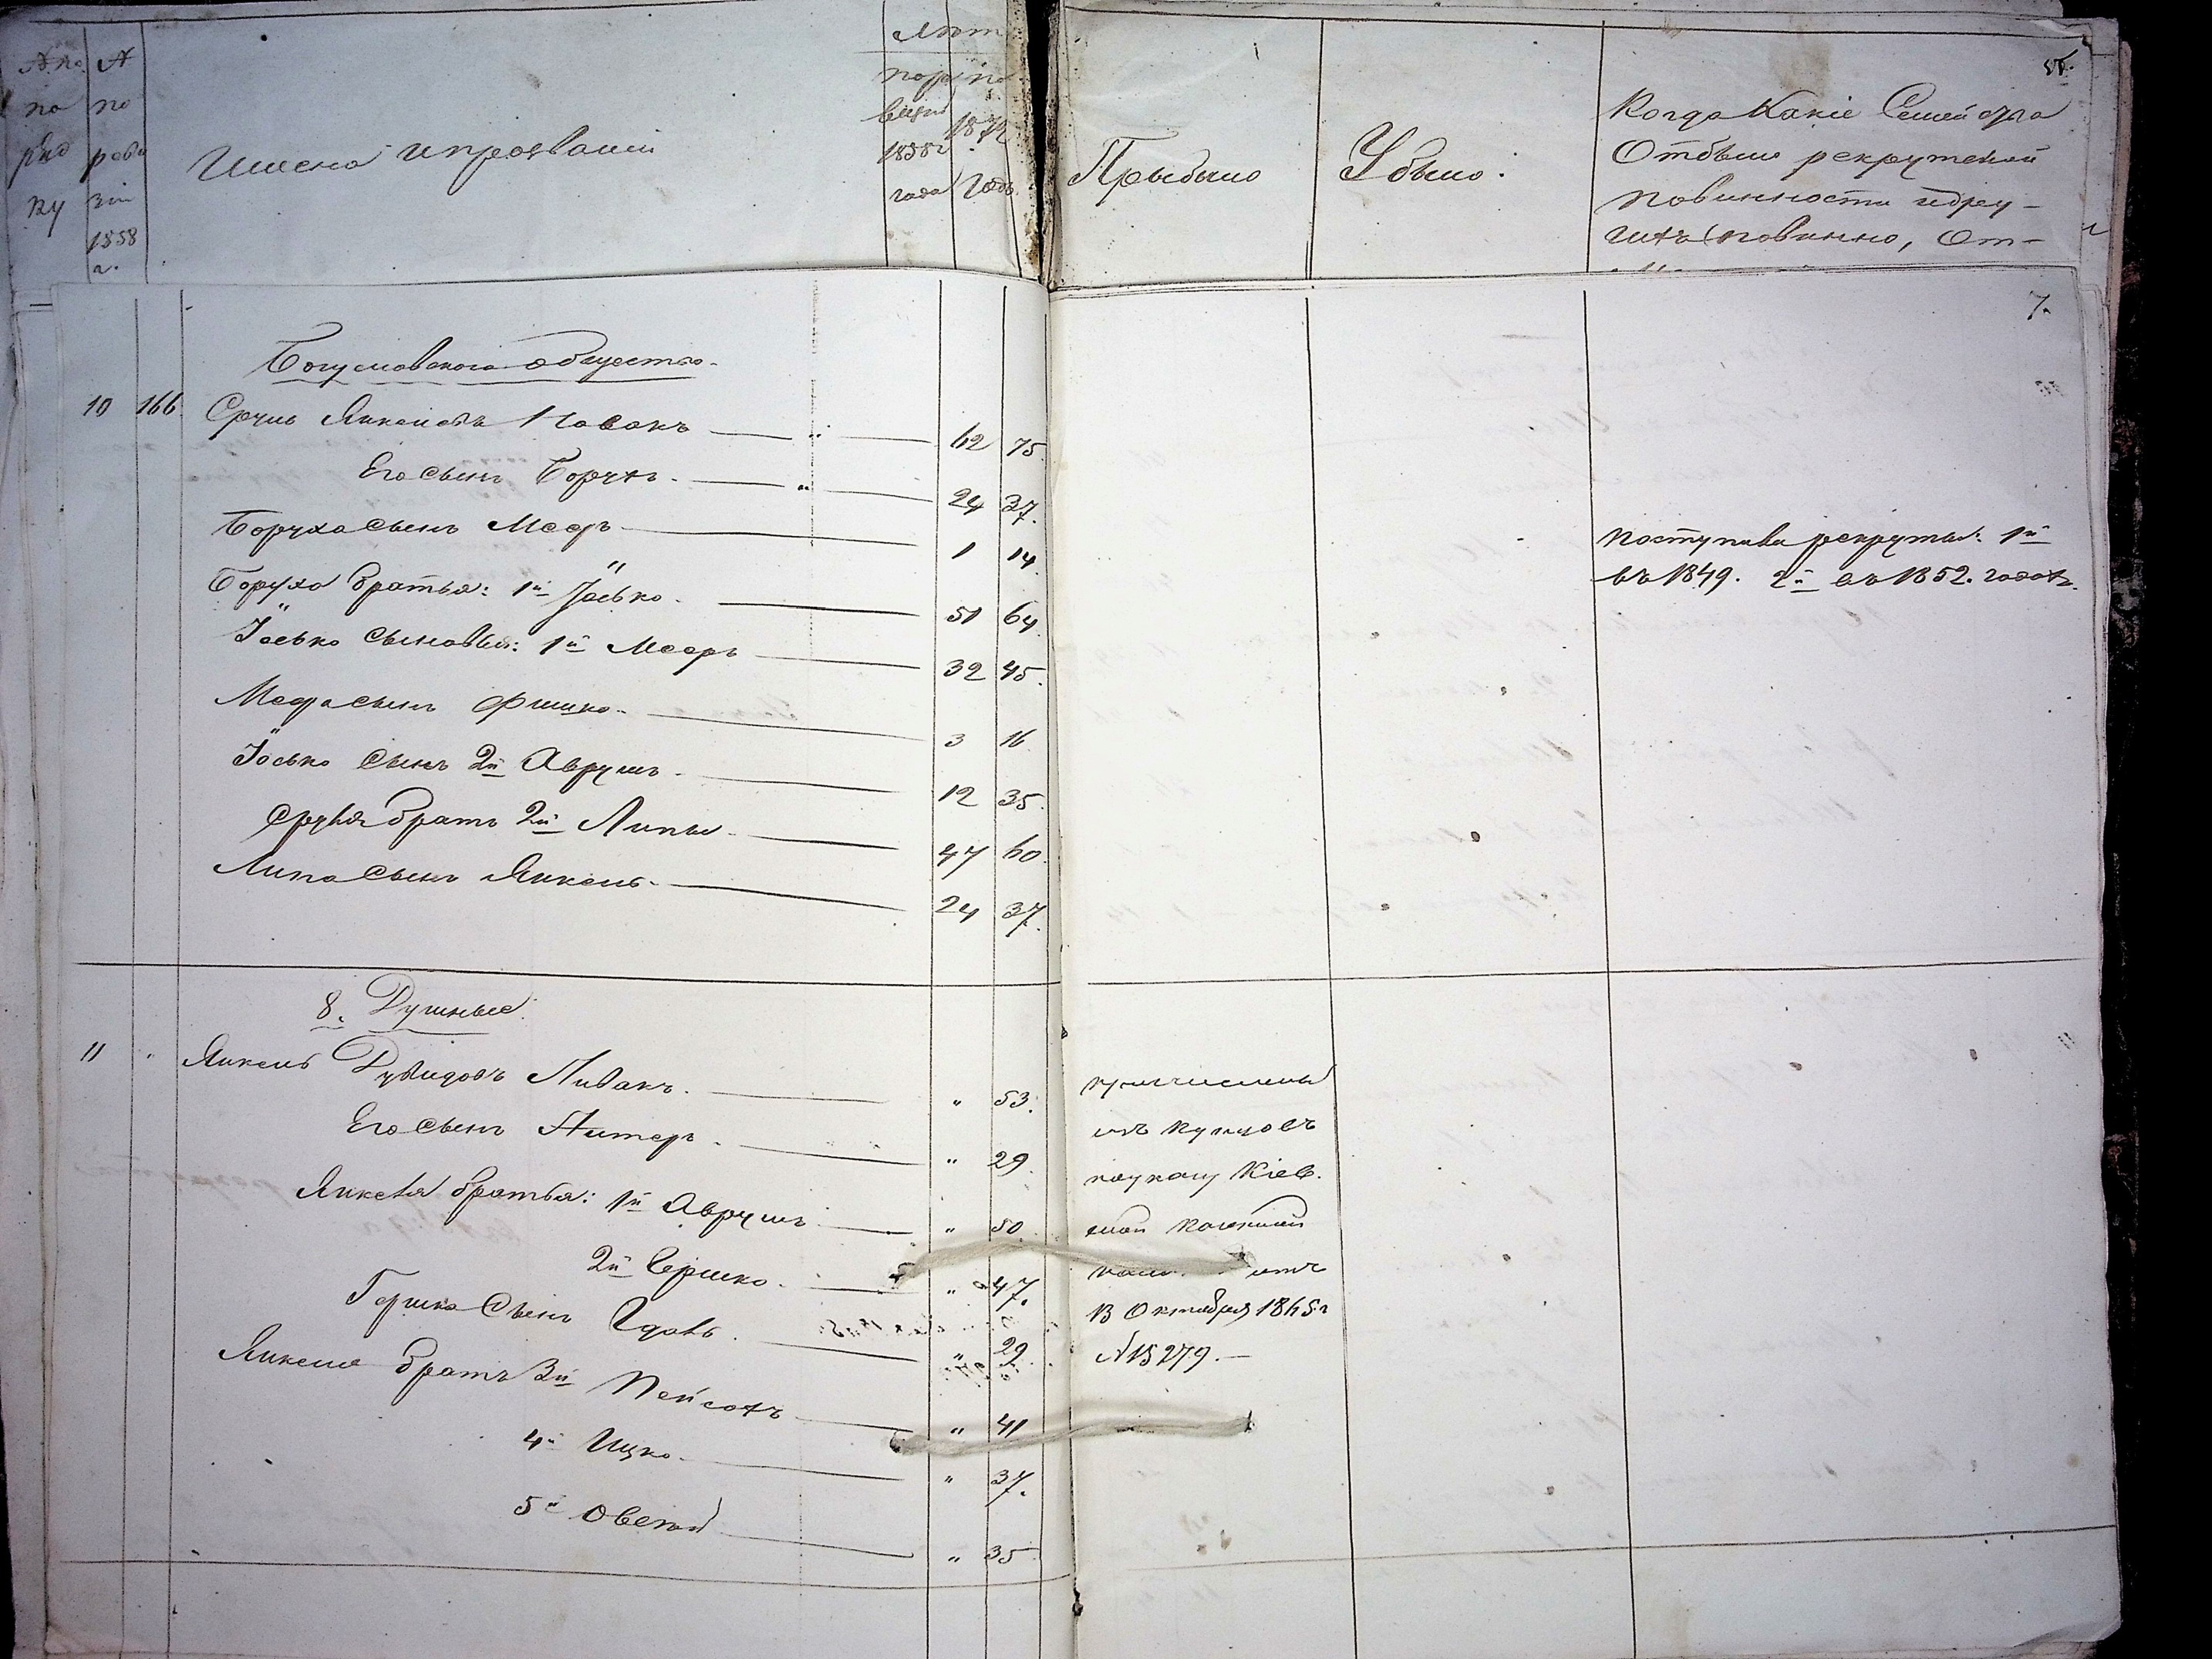 № по
по
ряд
ку
№
по
реви
зіи
1858
г.
Имена и прозваніи
Лѣт
по ре
визіи
1858
года
по
1871
годъ
Прибыло
Убыло.
Когда какіе Семейства
Отбыли рекрутской
повинности и други-
ихъ повинно, От-
7.
Богуславского общества.
10 166 Сруль Янкелевъ Новакъ — 62 75.
Его сынъ Борухъ. — 24 37.
Боруха сынъ Меер — 1 14.
Боруха братья: 1й Іосько. — 51 64.
Іосько сыновья: 1й Мееръ — 32 45.
Меера сынъ Фишко. — 3 16
Іосько сынъ 2й Аврумъ. — 12 35.
Сруля братъ 2й Липы. — 47 60.
Липа сынъ Янкель. — 24 37.
поступили рекруты: 1й
въ 1849. 2й въ 1852. годахъ.
8. Душные.
11 " Янкель Дувидовъ Пивакъ. — " 53.
Его сынъ Алтеръ. — " 29.
Янкеля братья: 1й Аврумъ — " 50.
2й Гершко. — " 47.
Гершко сынъ Удовъ. — " 29.
Янкеля братъ 3й Пейсахъ — " 41
4й Ицко. — " 37.
5й Овсей — " 35
причислены
изъ купцовъ
по указу Кіев.
ской казенной
13 Октября 1865 г
№ 15279.—